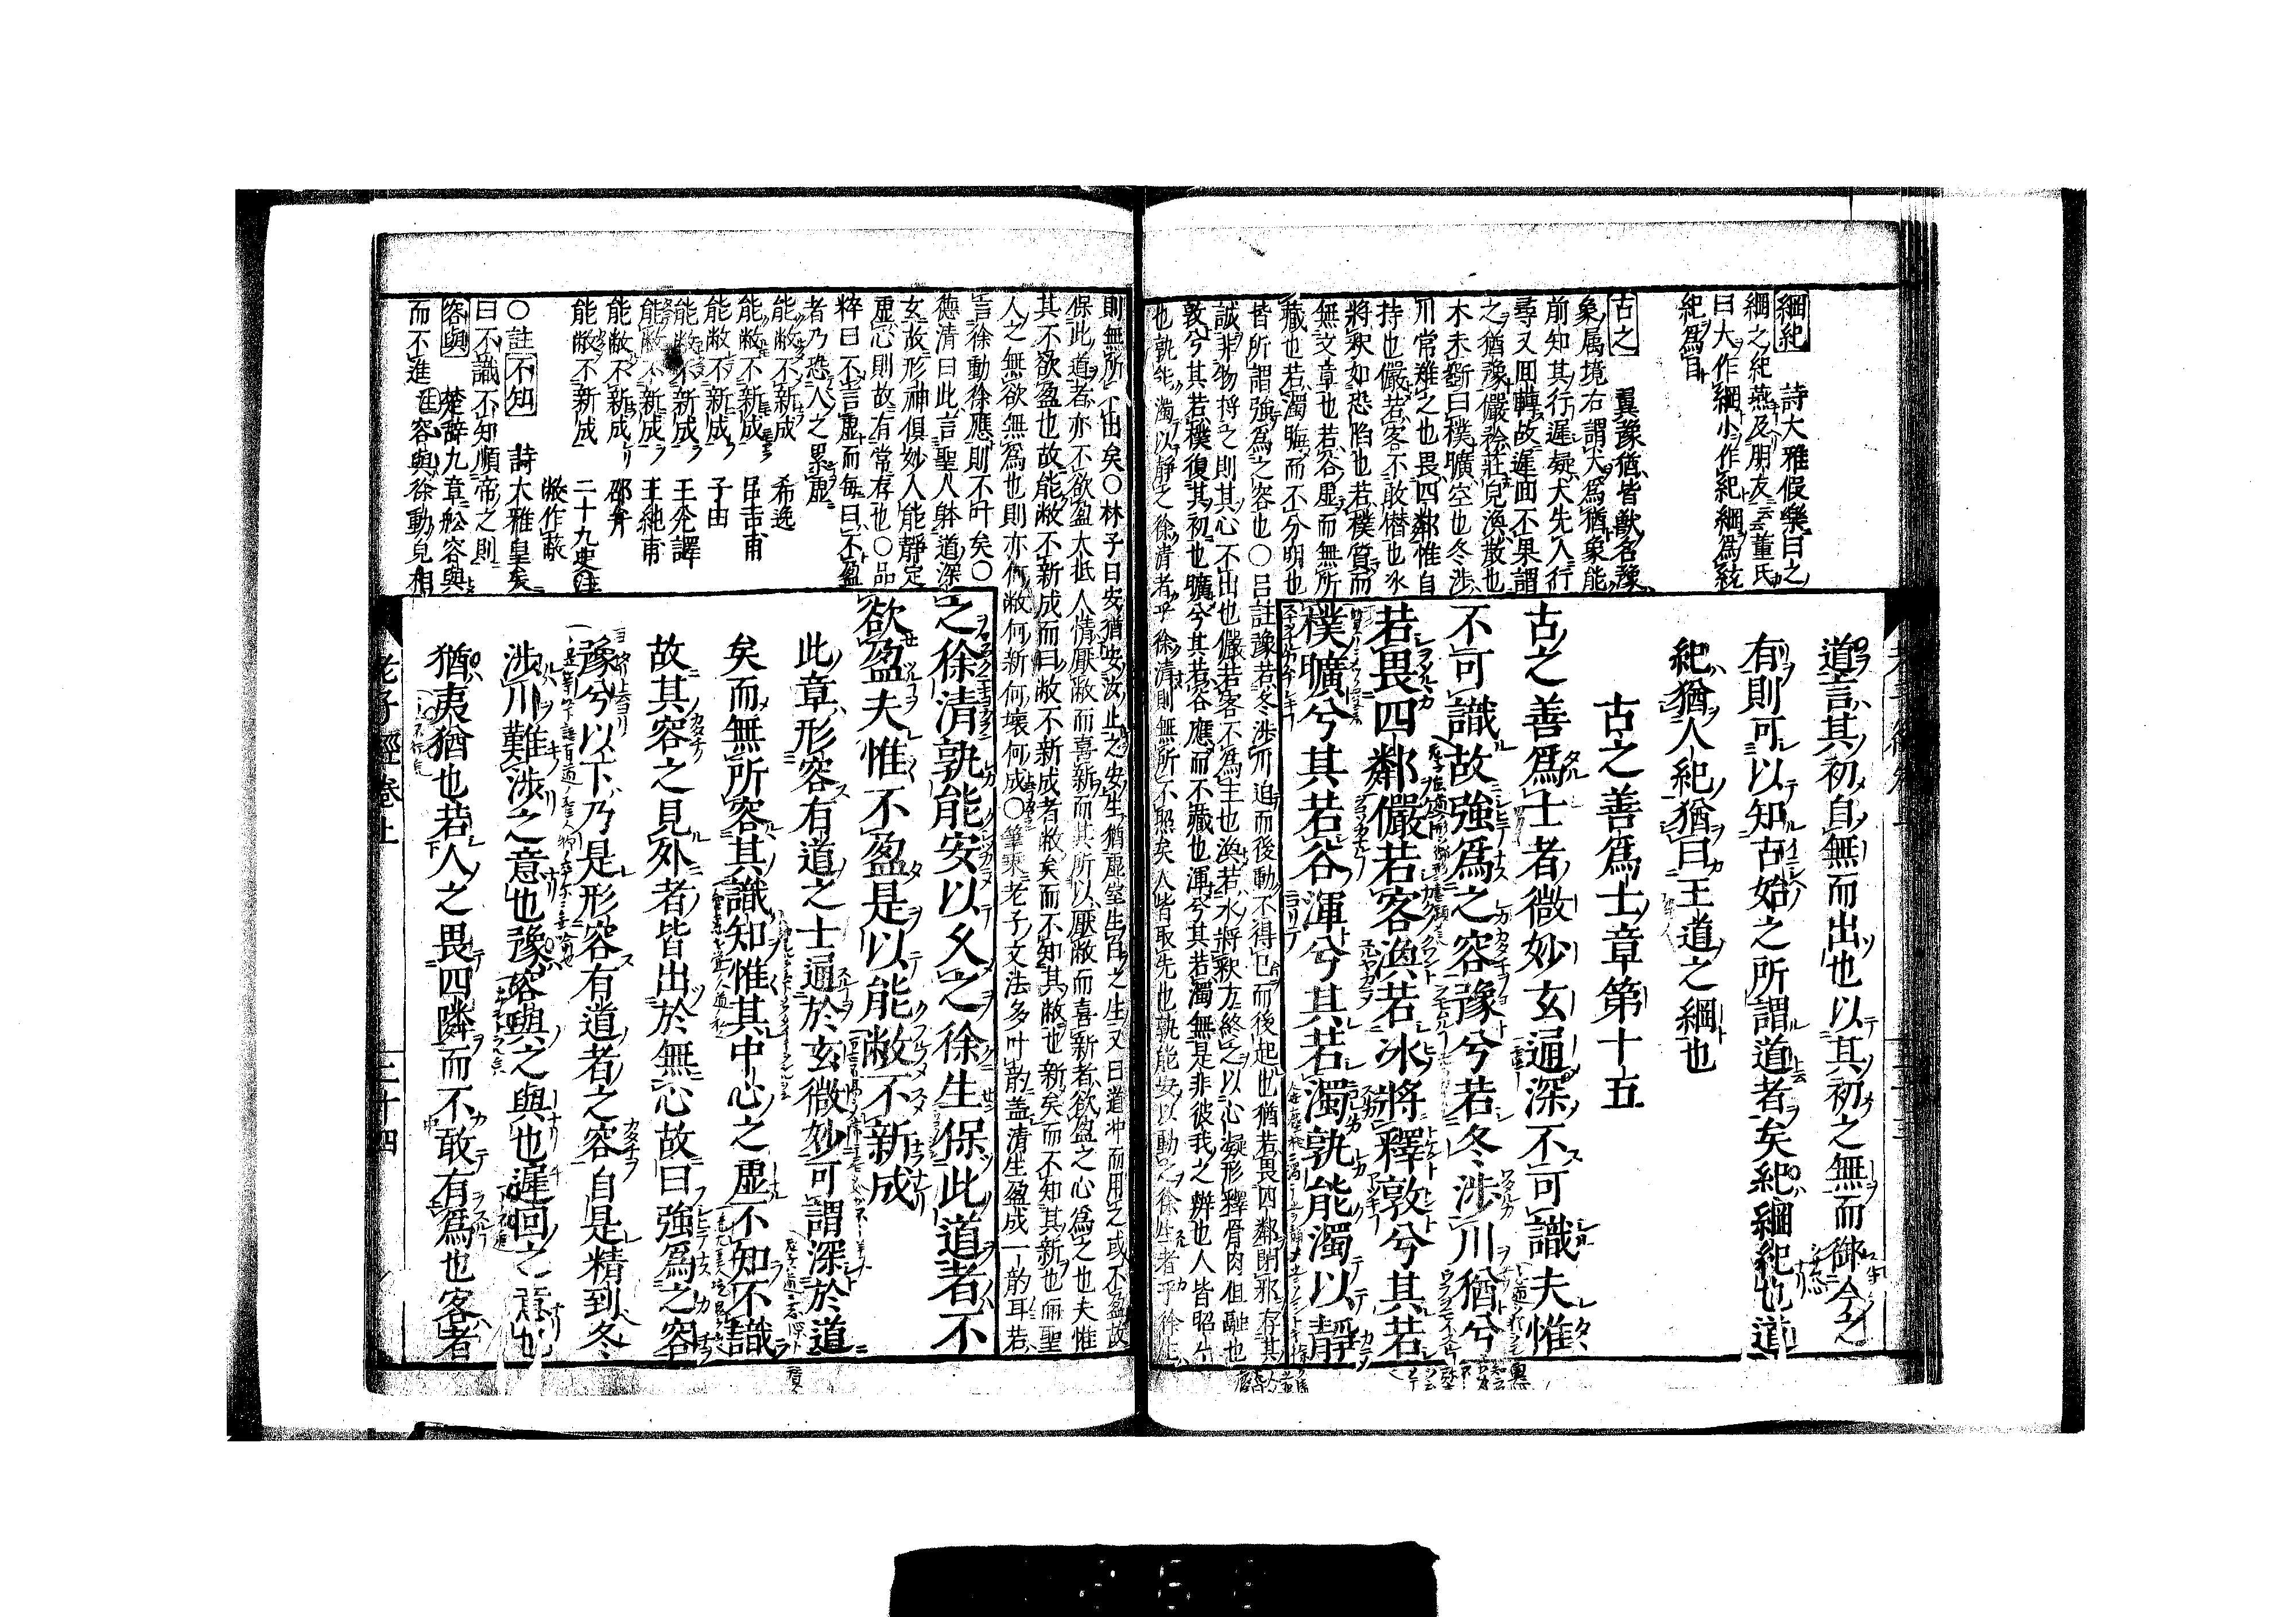 道言其初自無而出也以其初之無而御今之
有則可以知古始之所謂道者矣紀綱紀也道
紀猶人紀猶曰王道之綱也
古之善爲士章第十五
古之善爲士者微妙玄通深不可識夫惟
不可識故強爲之容豫兮若冬涉川猶兮
若畏四鄰儼若客渙若冰將釋敦兮其若
樸曠兮其若谷渾兮其若濁孰能濁以靜
綱紀 詩大雅假樂曰之
綱之紀燕及朋友云云董氏
曰大作綱小作紀綱爲紘
紀爲目
古之 翼豫猶皆獸名豫
象属境右謂犬爲猶象能
前知其行遲疑犬先人行
尋又囬轉故遲囬不果謂
之猶豫儼矜莊皃渙散也
木未斲曰樸曠空也冬涉
川常難之也畏四鄰惟自
持也儼若客不敢僭也氷
將釈如恐陷也若樸質而
無文章也若谷虛而無所
藏也若濁晦而不分明也
皆所謂強爲之容也〇呂註豫若冬涉川迫而後動不得已而後起也猶若畏四鄰閉邪存其
誠非物捋之則其心不出也儼若客不爲主也渙若冰將釈方終之以心凝形釋骨肉俱融也
敦兮其若樸復其初也曠兮其若谷應而不藏也渾兮其若濁無是非彼我之辨也人皆昭昭
也孰能濁以靜之徐清者乎徐清則無所不照矣人皆取先也孰能安以動之徐生者乎徐生
則無所不出矣〇林子曰安猶安汝止之安生猶虛室生白之生又曰道冲而用之或不盈故
保此道者亦不欲盈大抵人情厭敝而喜新而其所以厭敝而喜新者欲盈之心爲之也夫惟
其不欲盈也故能敝不新成而曰敝不新成者敝矣而不知其敝也新矣而不知其新也而聖
人之無欲無爲也則亦何敝何新何壞何成〇筆乘老子文法多叶韵盖清生盈成一韵耳若
言徐動徐應則不叶矣〇
德清曰此言聖人躰道深
玄故形神俱妙人能靜定
虛心則故有常存也〇品
粹曰不言虛而每曰不盈
者乃恐人之累虛
能敝不新成 希逸
能敝不新成 呂吉甫
能敝不新成 子由
能敝不新成 王元譯
能敝不新成 王純甫
能敝不新成 邵弁
能敝不新成 二十九史注
敝作蔽
〇註不知 詩大雅皇矣
曰不識不知順帝之則
容與 楚辭九章舩容與
而不進 註容與徐動皃相
之徐清孰能安以久之徐生保此道者不
欲盈夫惟不盈是以能敝不新成
此章形容有道之士通於玄微妙可謂深於道
矣而無所容其識知惟其中心之虛不知不識
故其容之見外者皆出於無心故曰強爲之容
豫兮以下乃是形容有道者之容自是精到冬
涉川難涉之意也豫容與之與也遲回之意也
猶夷猶也若人之畏四隣而不敢有爲也客者
老子經卷上
三十四